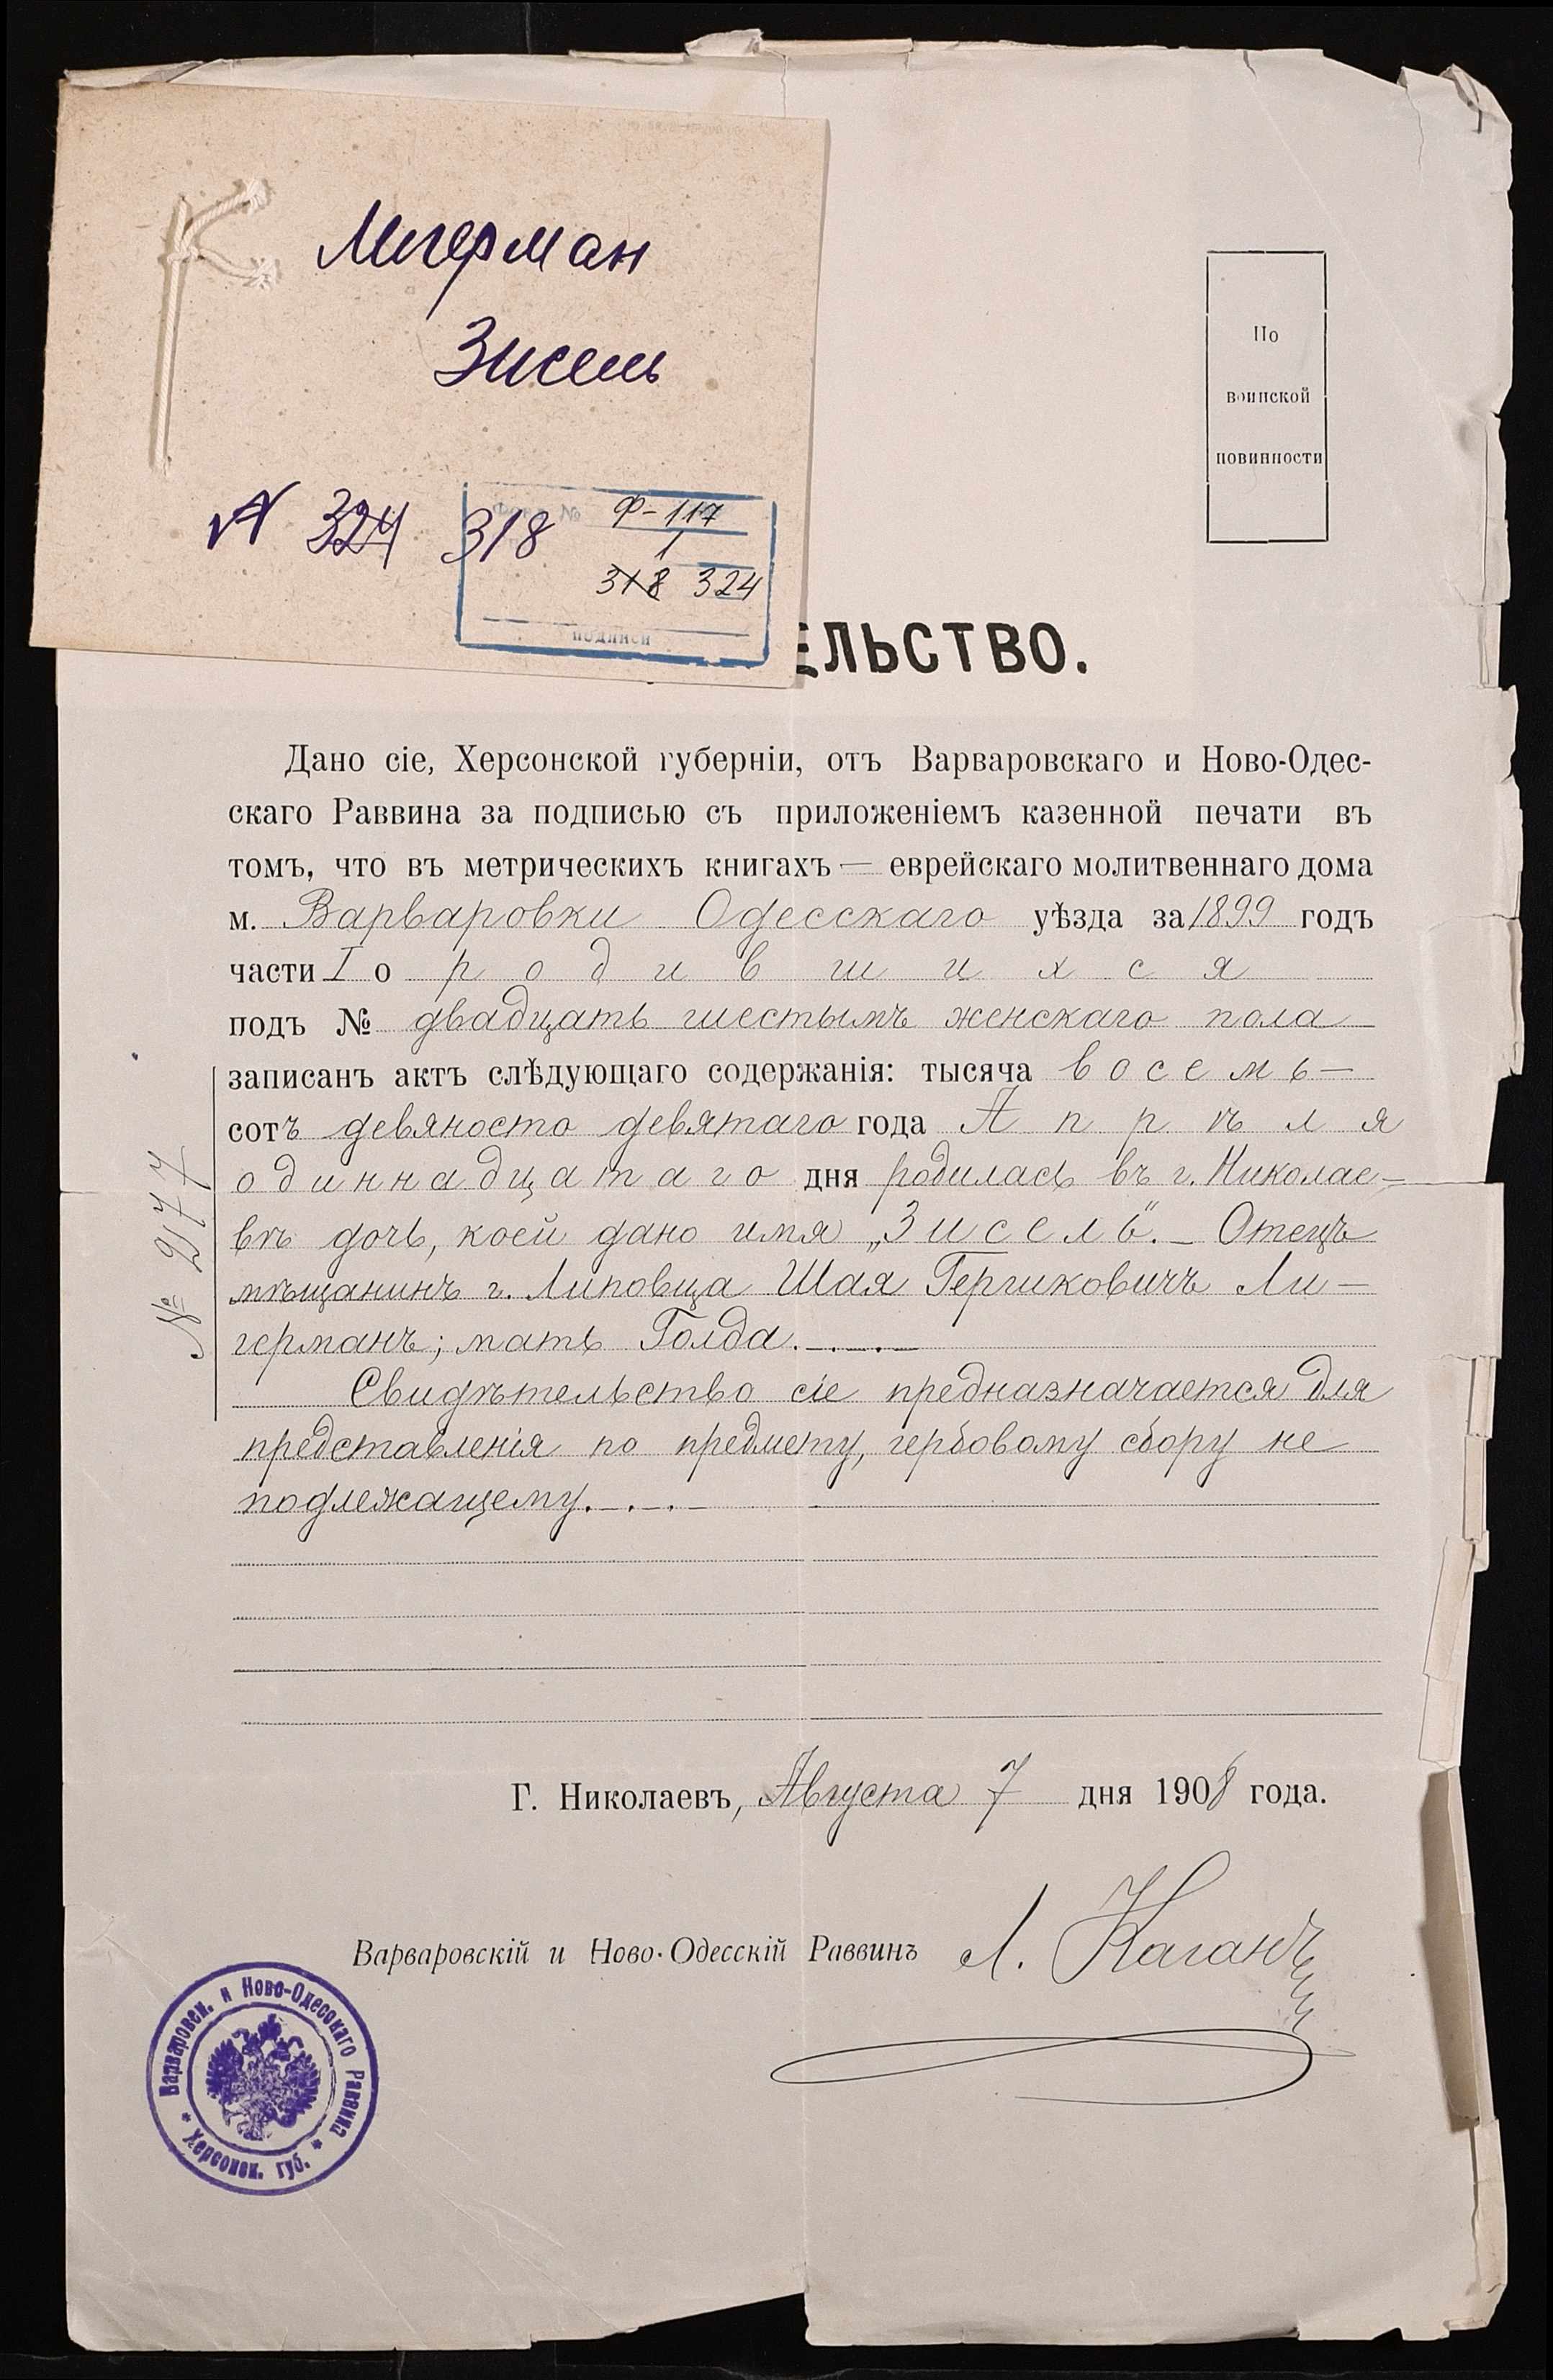 Лигерман
Зисель
№ 324 318
Фонд № Ф-117
1
318 324
По
воинской
повинности
ЕЛЬСТВО.
Дано сіе, Херсонской губерніи, отъ Варваровскаго и Ново-Одес-
скаго Раввина за подписью съ приложеніемъ казенной печати въ
томъ, что въ метрическихъ книгахъ — еврейскаго молитвеннаго дома
м. Варваровки Одесскаго уѣзда за 1899 годъ
части I о родившихся
подъ № двадцать шестымъ женскаго пола
записанъ актъ слѣдующаго содержанія: тысяча восемь-
сотъ девяносто девятаго года Апрѣля
одиннадцатаго дня родилась въ г. Николае-
вѣ дочь, коей дано имя „Зисель“. — Отецъ
мѣщанинъ г. Липовца Шая Гершковичъ Ли-
германъ; мать Голда.
Свидѣтельство сіе предназначается для
представленія по предмету, гербовому сбору не
подлежащему.
№ 2177
Г. Николаевъ, Августа 7 дня 1908 года.
Варваровскій и Ново-Одесскій Раввинъ Л. Каганъ
Варваровск. и Ново-Одесскаго Раввина
* Херсонск. губ. *